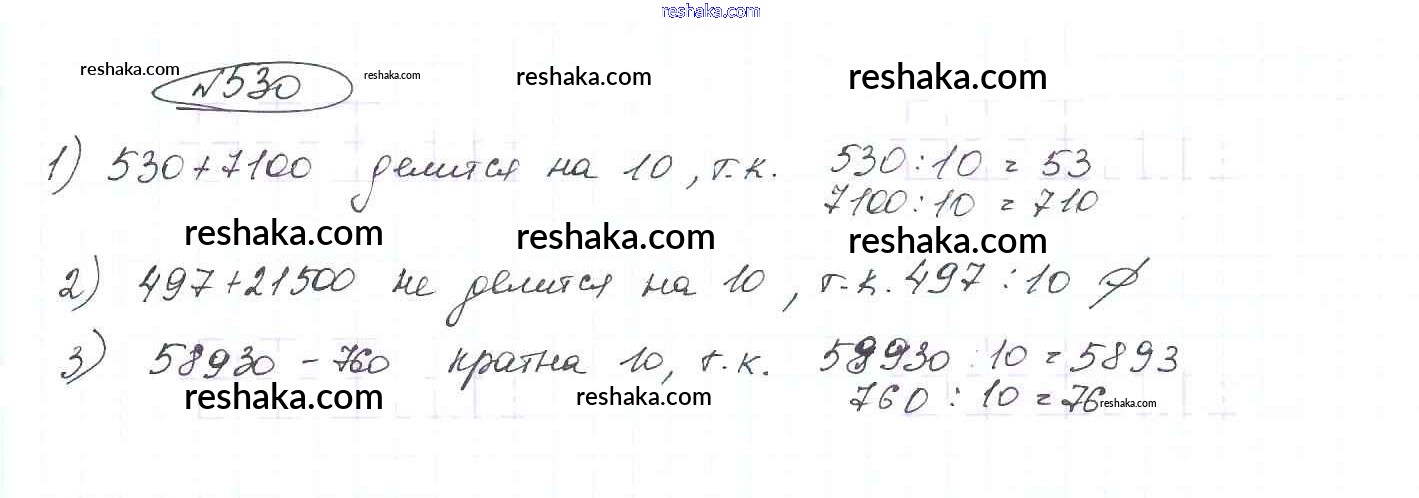 reshaka.com
reshaka.com №530 reshaka.com reshaka.com reshaka.com
1) 530+7100 делится на 10, т.к. 530:10=53
7100:10=710
reshaka.com reshaka.com reshaka.com
2) 497+21500 не делится на 10, т.к. 497:10 ∅
3) 58930-760 кратна 10, т.к. 58930:10=5893
reshaka.com reshaka.com 760:10=76 reshaka.com